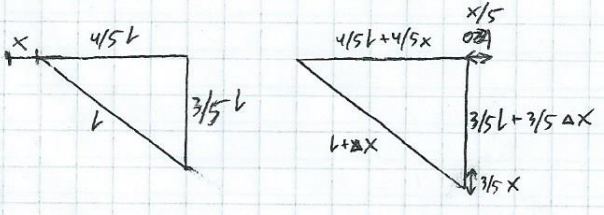 x
4/5 l
3/5 l
l
x/5
4/5 l + 4/5 x
3/5 l + 3/5 Δx
l + Δx
3/5 x